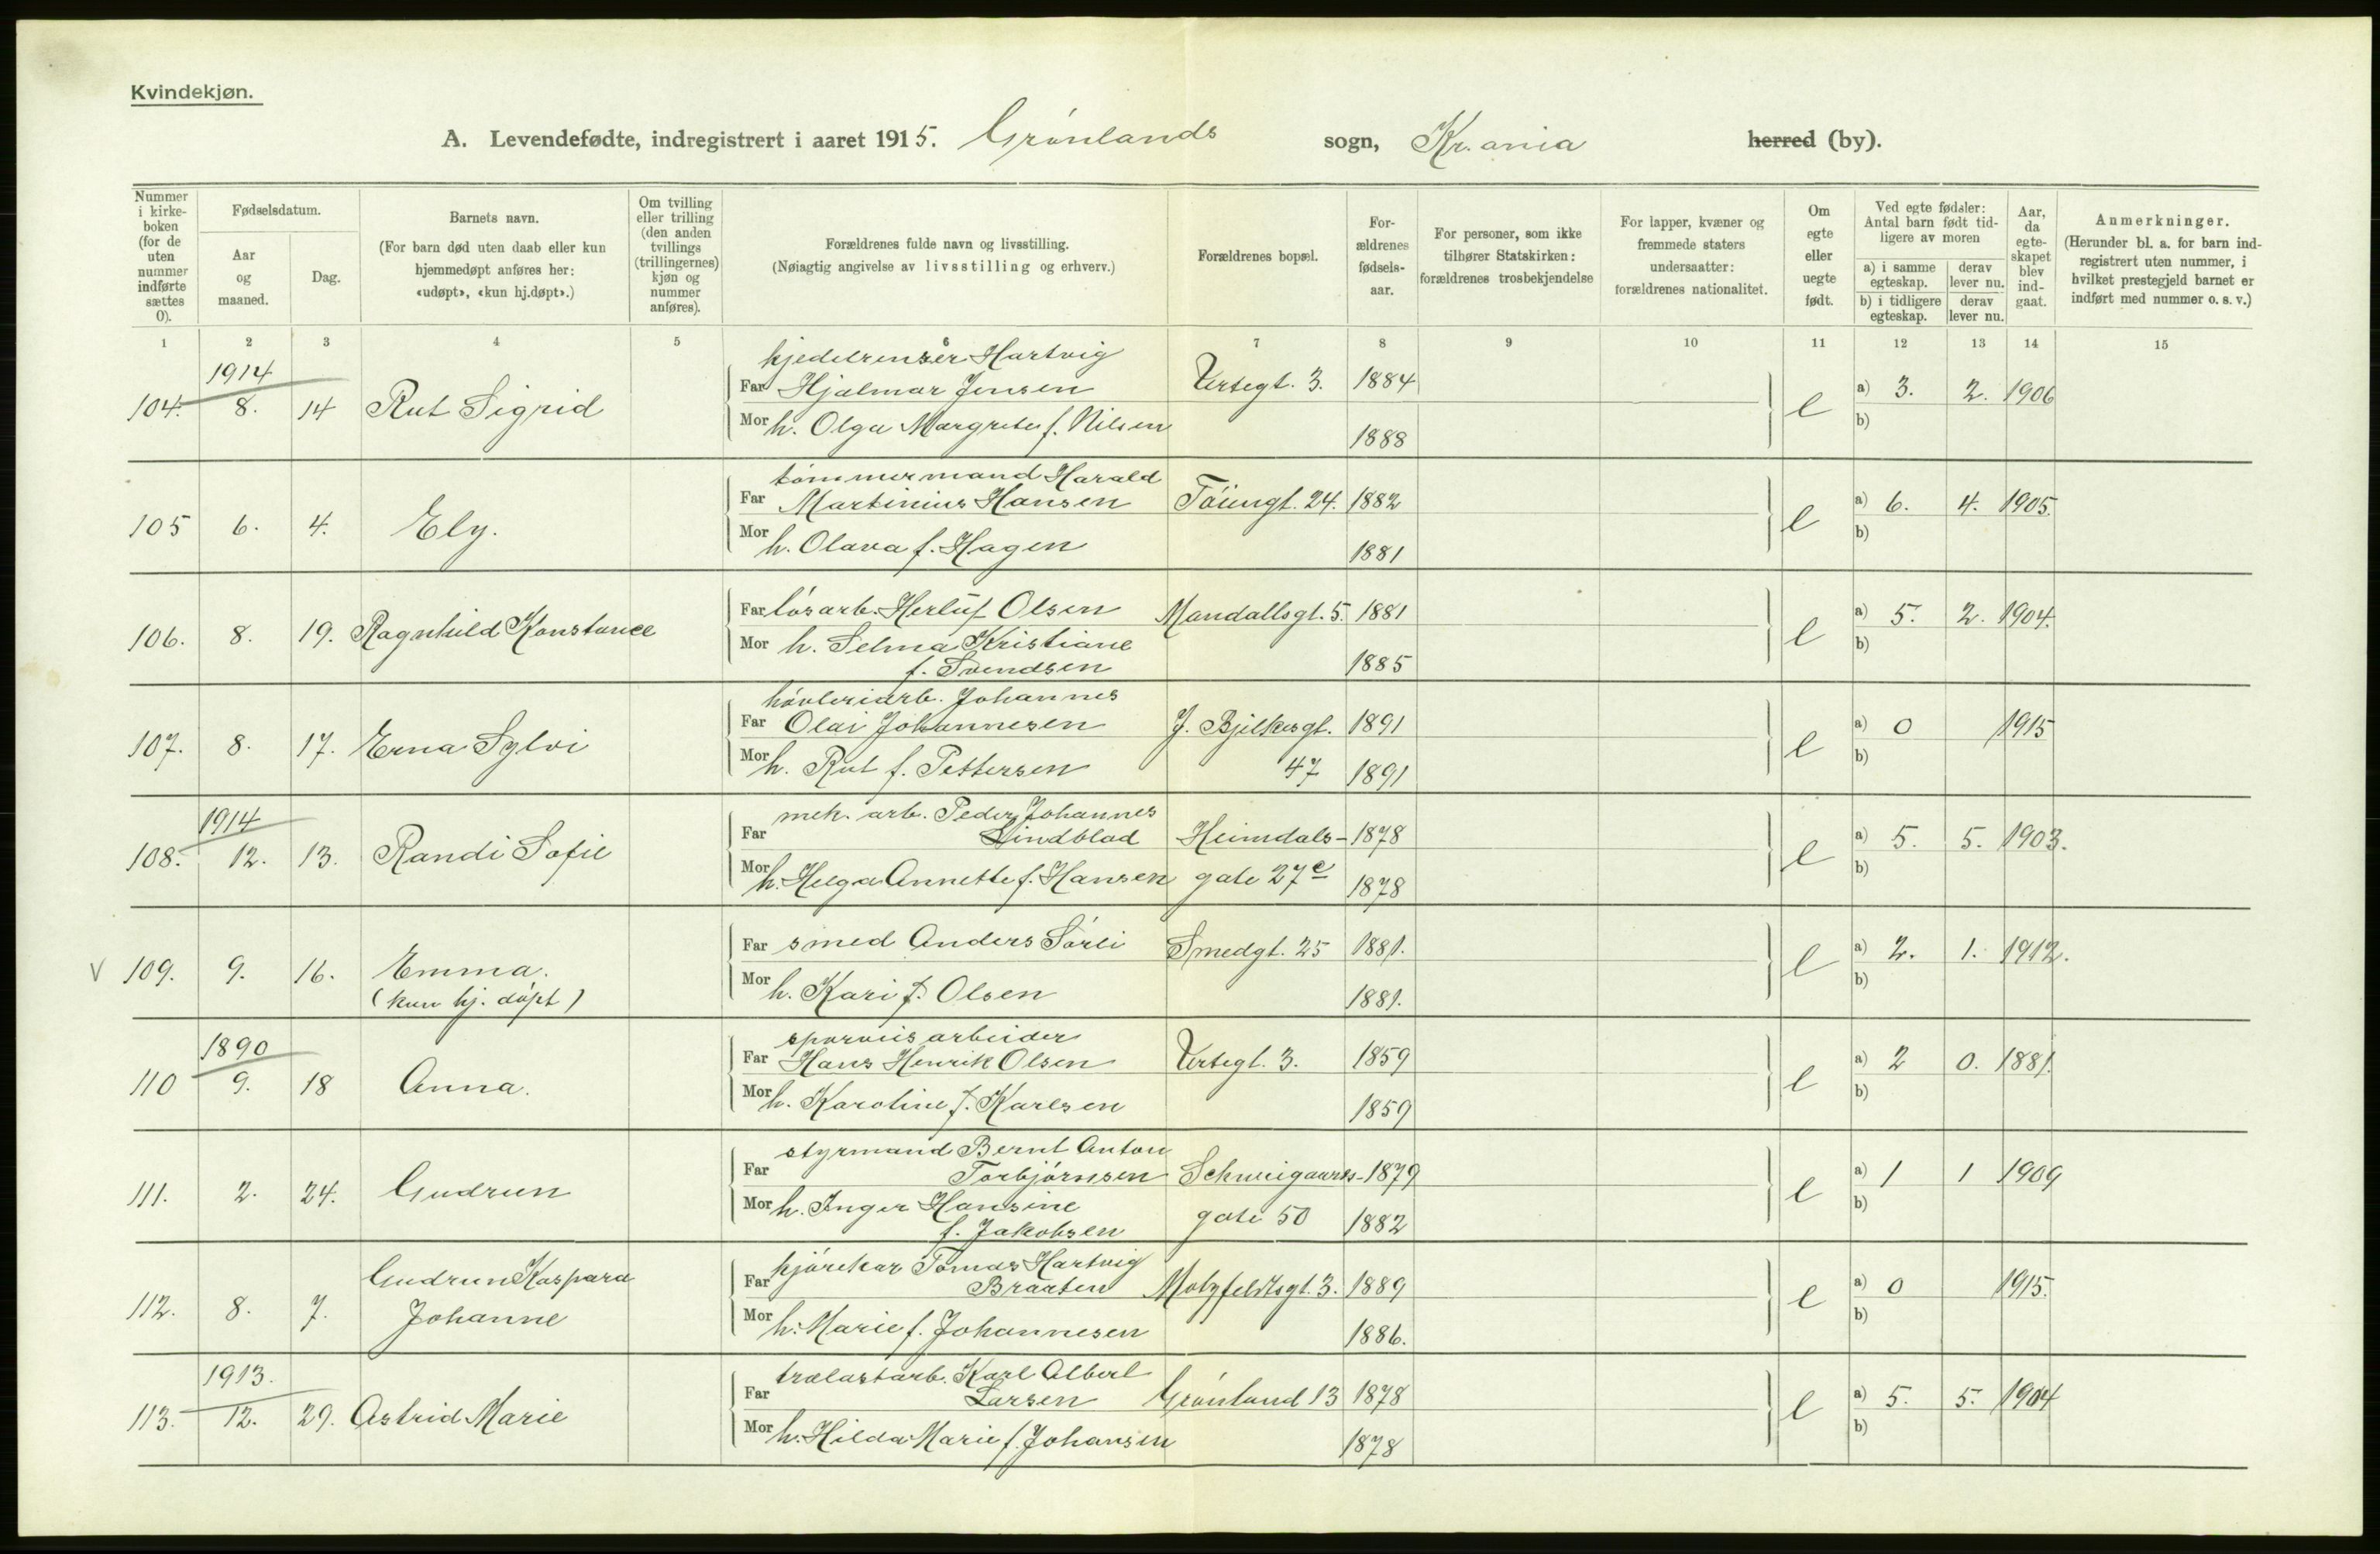 Kvindekjøn.
A. Levendefødte, indregistrert i aaret 1915. Grønlands sogn, Kr.ania herred (by).
Nummer i kirkeboken (for de uten nummer indførte sættes 0).
Fødselsdatum.
Aar og maaned.
Dag.
Barnets navn.
(For barn død uten daab eller kun hjemmedøpt anføres her: «udøpt», «kun hj.døpt».)
Om tvilling eller trilling (den anden tvillings (trillingernes) kjøn og nummer anføres).
Forældrenes fulde navn og livsstilling.
(Nøiagtig angivelse av livsstilling og erhverv.)
Forældrenes bopæl.
Forældrenes fødselsaar.
For personer, som ikke tilhører Statskirken: forældrenes trosbekjendelse
For lapper, kvæner og fremmede staters undersaatter: forældrenes nationalitet.
Om egte eller uegte født.
Ved egte fødsler: Antal barn født tidligere av moren
a) i samme egteskap. derav lever nu.
b) i tidligere egteskap. derav lever nu.
Aar, da egteskapet blev indgaat.
Anmerkninger.
(Herunder bl. a. for barn indregistrert uten nummer, i hvilket prestegjeld barnet er indført med nummer o. s. v.)
1 2 3 4 5 6 7 8 9 10 11 12 13 14 15
1914
kjedelrenser Hartvig
Far Hjalmar Jensen Urtegt. 3. 1884
104. 8. 14 Rut Sigrid e a) 3. 2. 1906
Mor h. Olga Margrete f. Nilsen 1888 b)
tømmermand Harald
Far Martinius Hansen Tøiengt. 24. 1882
105 6. 4. Ely. e a) 6. 4. 1905.
Mor h. Olava f. Hagen 1881 b)
Far løsarb. Herluf Olsen Mandallsgt. 5. 1881
106. 8. 19. Ragnhild Konstance e a) 5. 2. 1904.
Mor h. Selma Kristiane
f. Svendsen 1885 b)
høvleriarb. Johannes
Far Olai Johannesen J. Bjelkesgt. 1891
107. 8. 17. Erna Sylvi e a) 0 1915
Mor h. Rut f. Pettersen 47 1891 b)
1914
mek. arb. Peder Johannes
Far Lindblad Heimdals- 1878
108. 12. 13. Randi Sofie e a) 5. 5. 1903.
Mor h. Helga Annette f. Hansen gate 27c 1878 b)
Far smed Anders Sørli Smedgt. 25 1881.
V 109. 9. 16. Emma. e a) 2. 1. 1912.
(kun hj. døpt)
Mor h. Kari f. Olsen 1881. b)
1890
sporveisarbeider
Far Hans Henrik Olsen Urtegt. 3. 1859
110 9. 18 Anna. e a) 2 0. 1881.
Mor h. Karoline f. Karlsen 1859 b)
styrmand Bernt Anton
Far Torbjørnsen Schweigaards- 1879
111. 2. 24. Gudrun e a) 1 1 1909
Mor h. Inger Hansine
f. Jakobsen gate 50 1882 b)
kjørekar Tomas Hartvig
Far Braaten Motzfeldtsgt. 3. 1889
Gudrun Kaspara
112. 8. 7. Johanne e a) 0 1915.
Mor h. Marie f. Johannesen 1886. b)
1913.
trælastarb. Karl Albert
Far Larsen Grønland 13 1878
113. 12. 29. Astrid Marie e a) 5. 5. 1904
Mor h. Hilda Marie f. Johansen 1878 b)